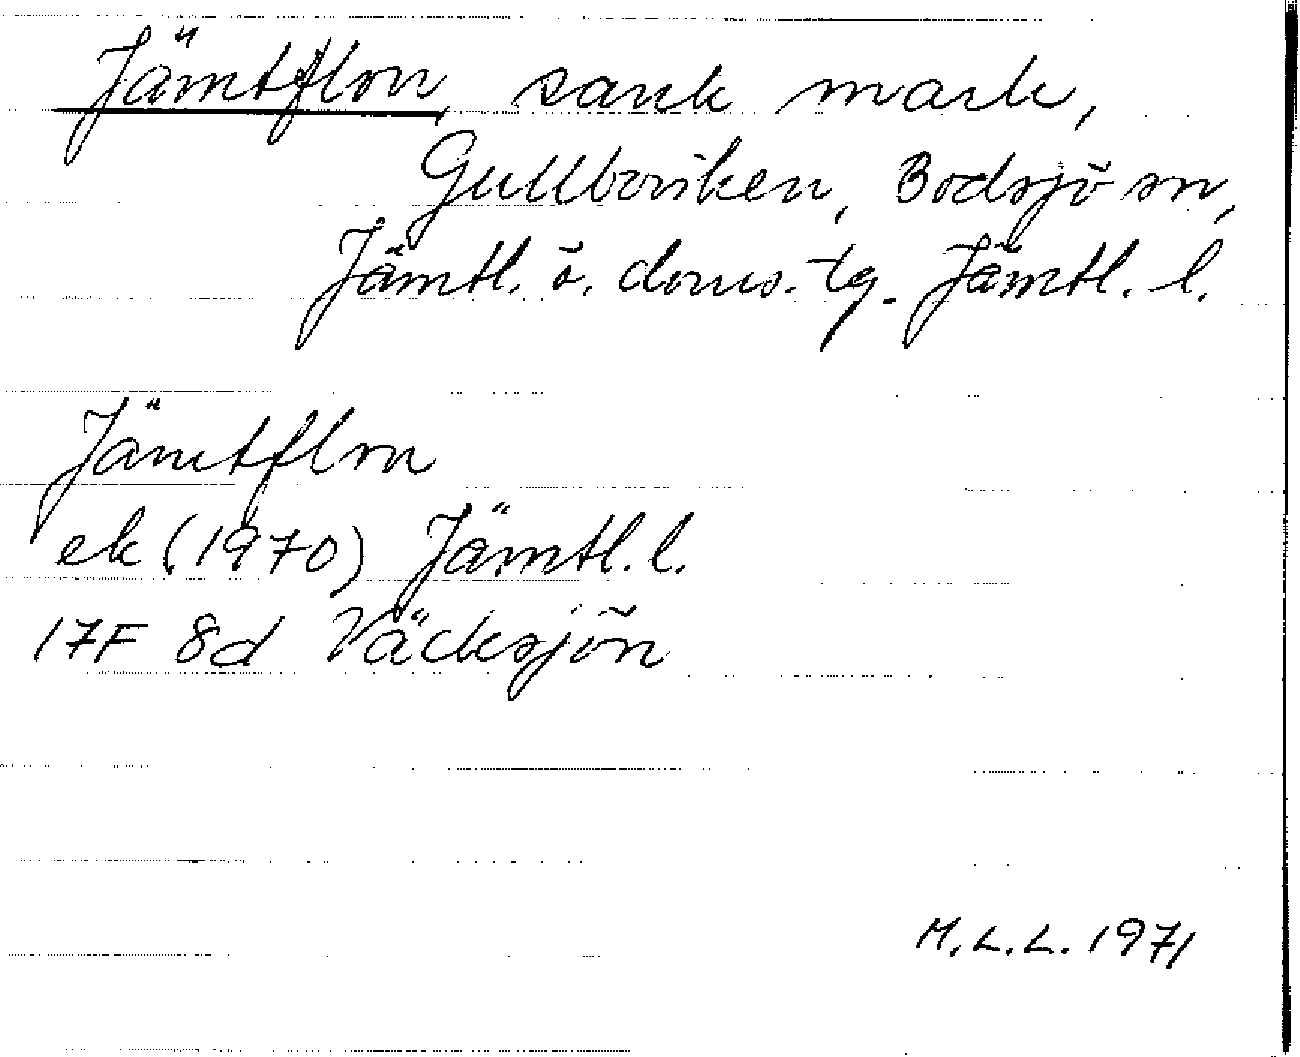 Jämtflon, sank mark,
Gullboviken, Bodsjö sn,
Jämtl. ö. doms. tg. Jämtl. l.
Jämtflon
ek (1970) Jämtl. l.
17F 8d Väcksjön
M.L.L. 1971